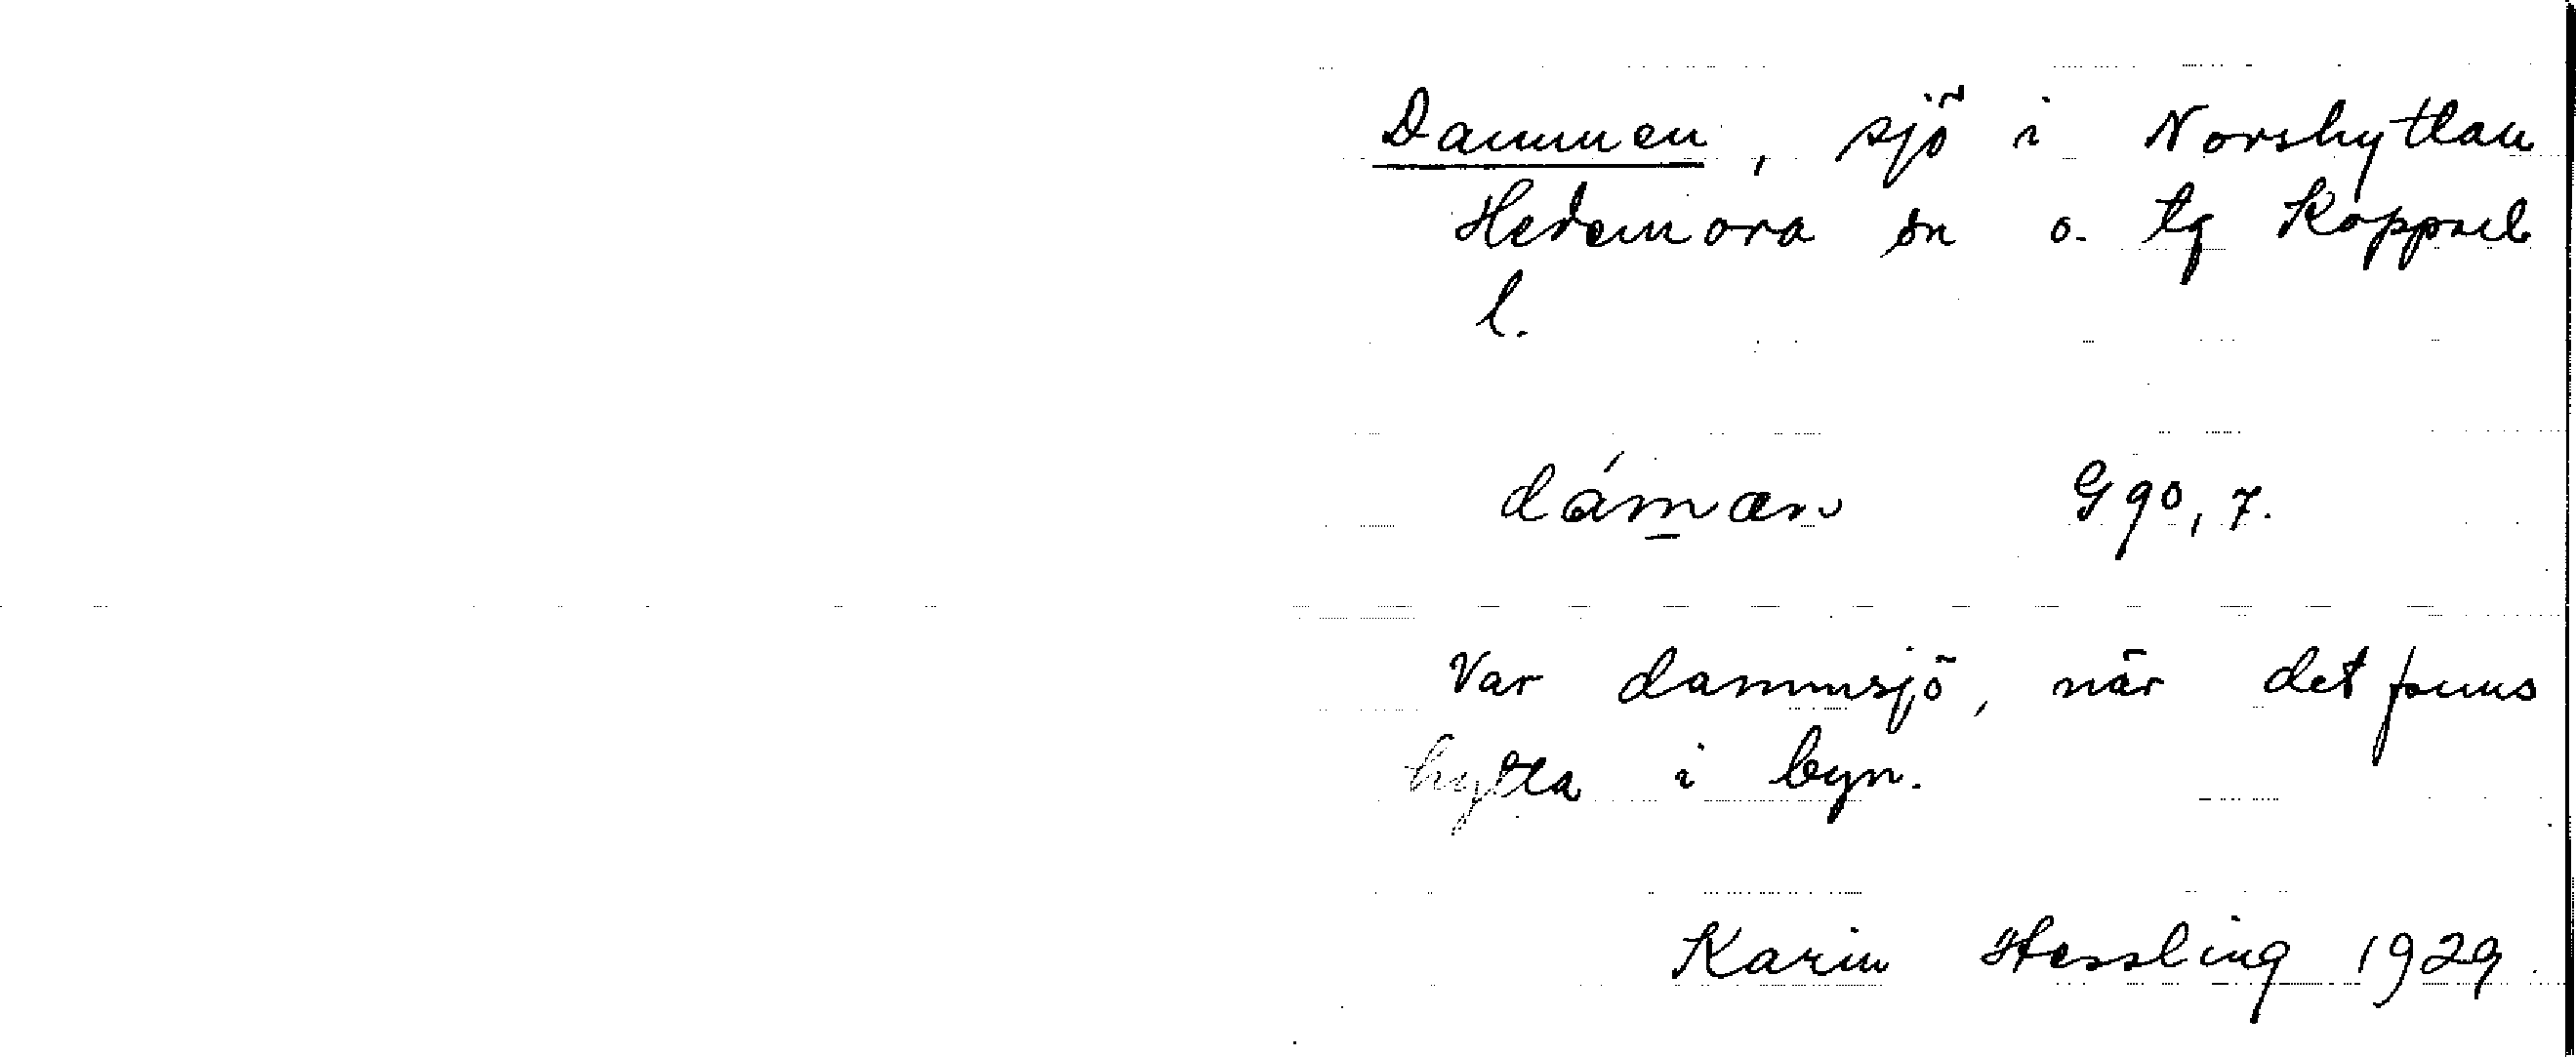 Dammen, sjö i Norshyttan
Hedemora sn o. tg Kopparb
l.
dámæn G 90, 7.
Var dammsjö, när det fanns
hytta i byn.
Karin Hessling 1929